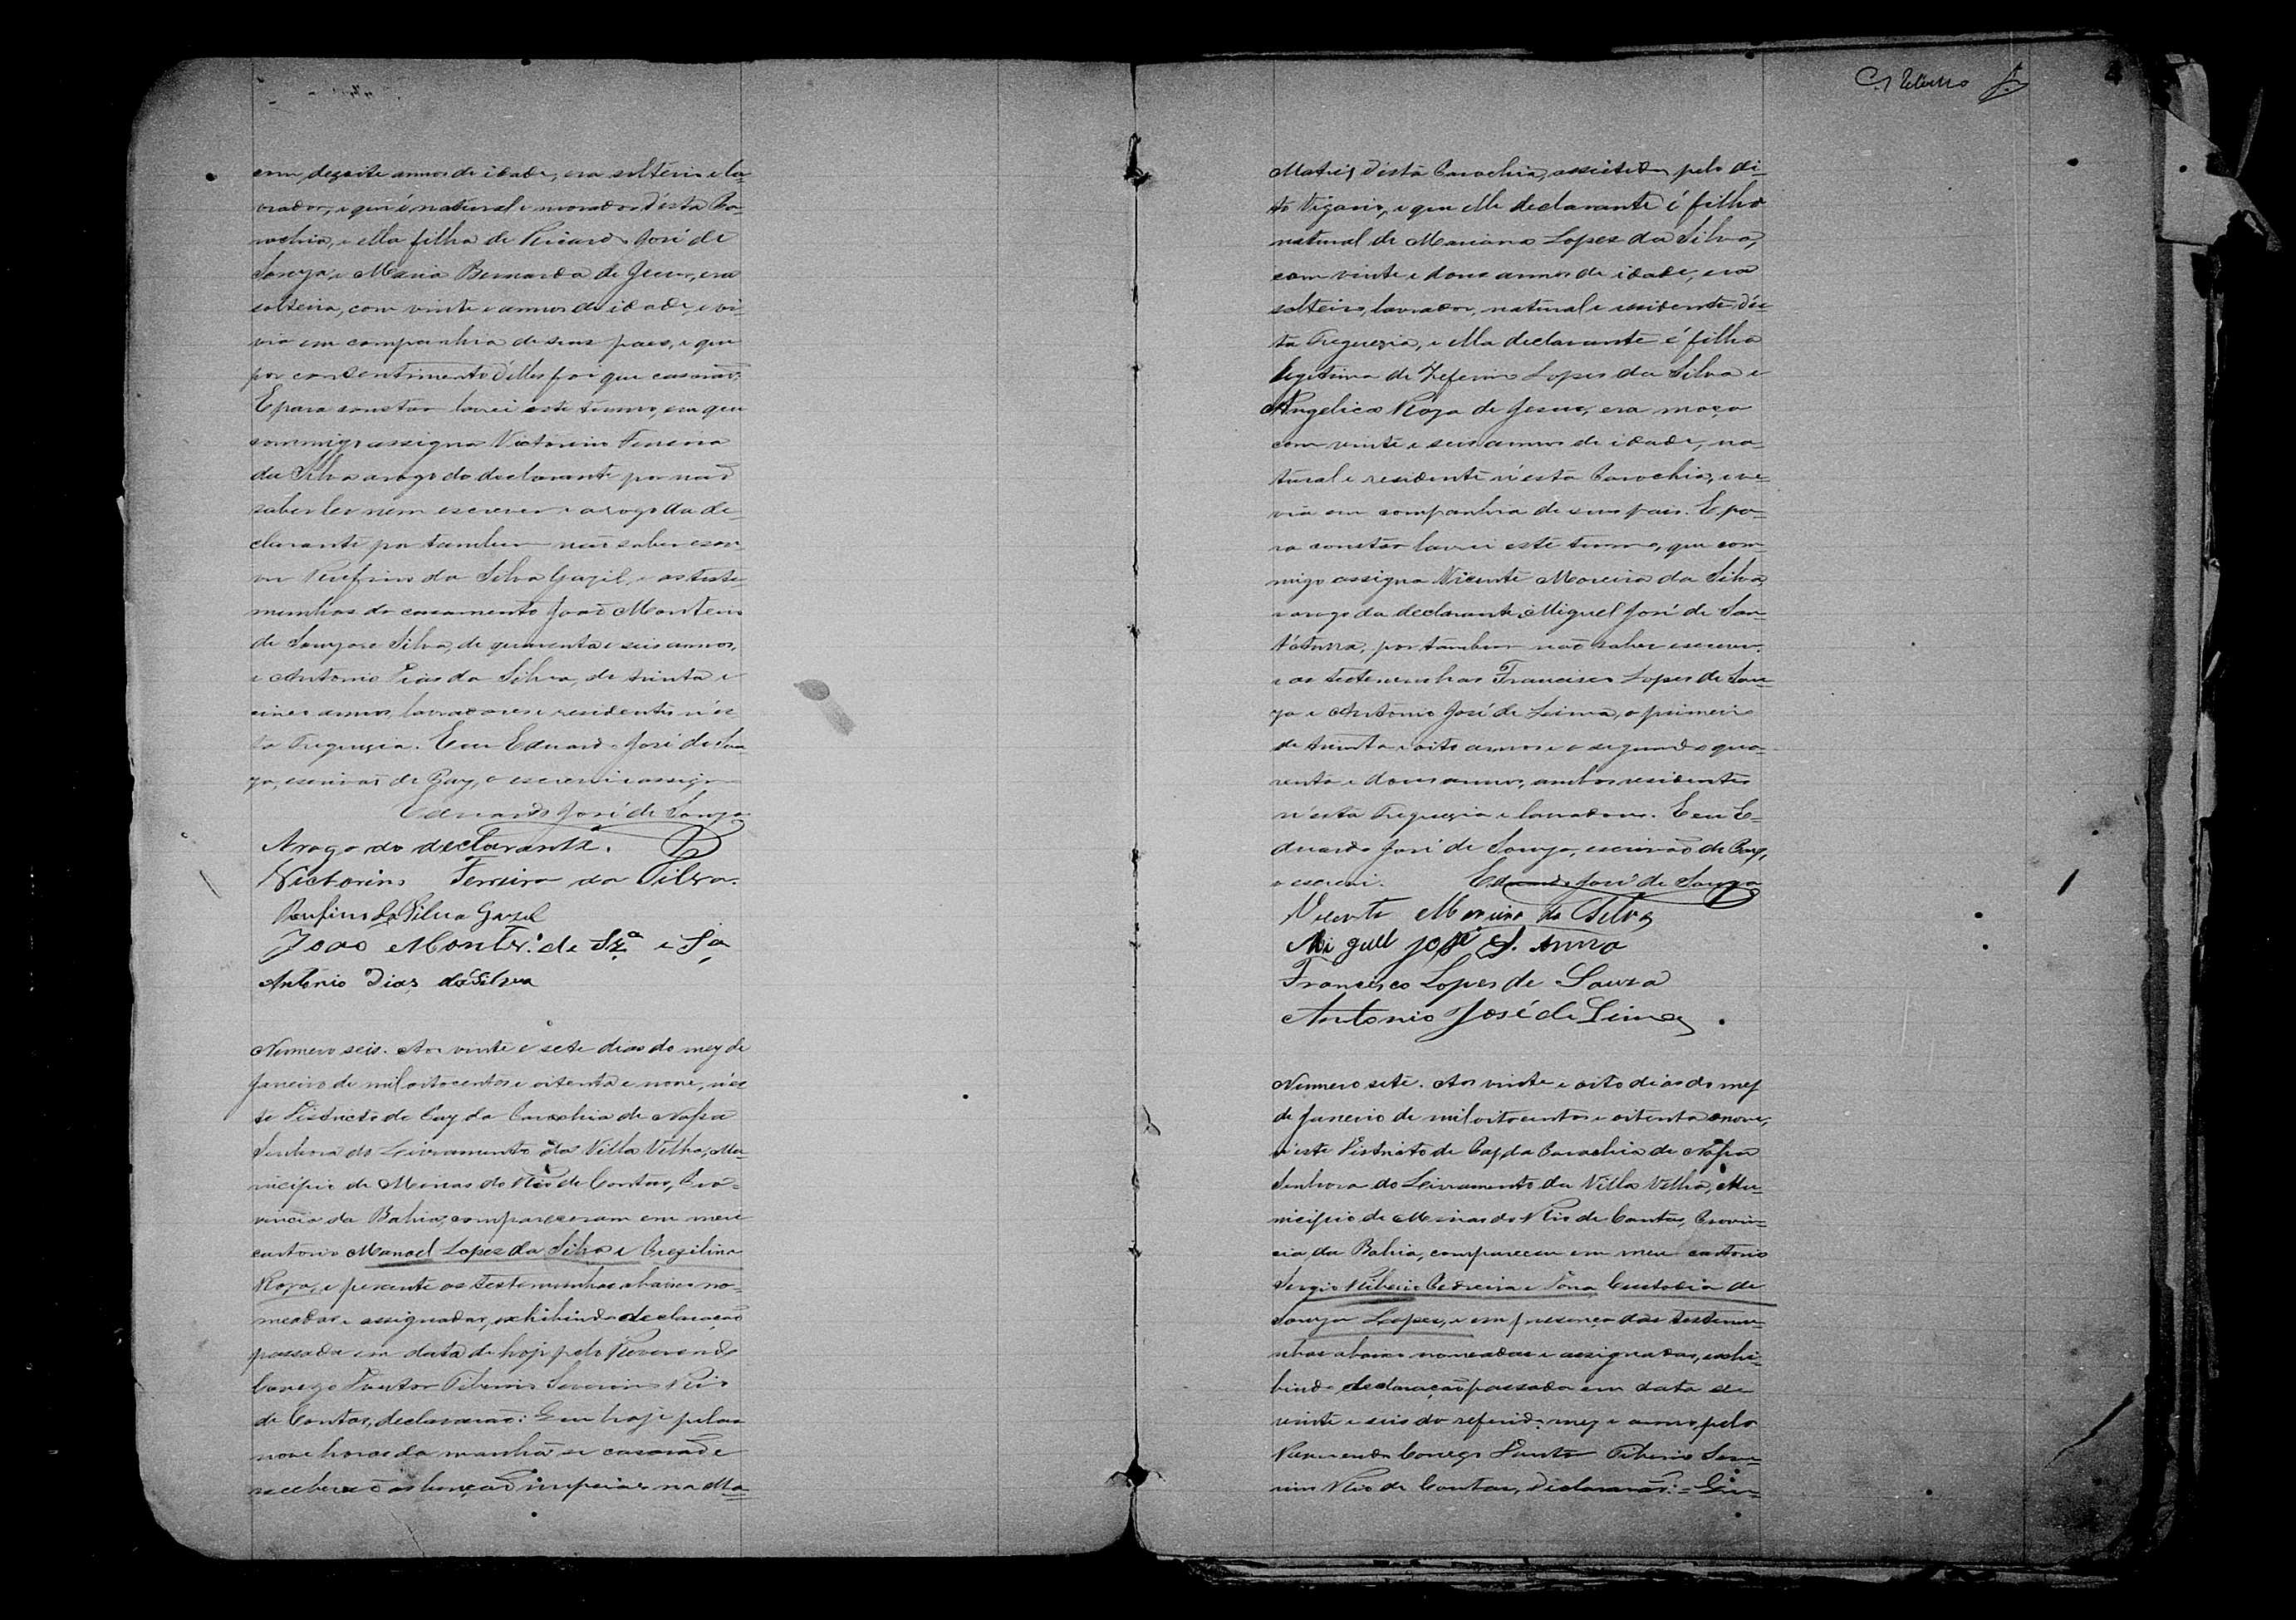 com dezoito annos de idade, era solteiro e la-
vrador, e que é natural e morador d'esta Pa-
rochia, e ella filha de Ricardo José de
Souza e Maria Bernarda de Jesus, era
solteira, com vinte e annos de idade, e vi-
via em companhia de seus paes, e que
por consentimento d'elles foi que casarão.
E para constar lavrei este termo, em que
commigo assigna Victorino Ferreira
da Silva arogo do declarante por não
saber ler nem escrever e arogo da de-
clarante por tambem não saber escre-
ver Rufino da Silva Gazil, e as teste-
munhas do casamento João Monteiro
de Souza e Silva, de quarenta e seis annos,
e Antonio Dias da Silva, de trinta e
cinco annos, lavradores e residentes n'es-
ta Freguezia. E eu Eduardo José de Sou
za, escrivão de Paz, o escrevi e assigno
Eduardo José de Souza
Arogo do declarante.
Victorino Ferreira da Silva.
Rufino da Silva Gazil
João Montr.º de Sz.ª e S.ª
Antonio Dias da Silva
Numero seis. Aos vinte e sete dias do mez de
Janeiro de mil oitocentos e oitenta e nove, n'es
te Districto de Paz da Parochia de Nossa
Senhora do Livramento da Villa Velha, Mu-
nicipio de Minas do Rio de Contas, Pro-
vincia da Bahia, compareceram em meu
cartorio Manoel Lopes da Silva e Cezilina
Roza, e perante as testemunhas abaixo no-
meadas e assignadas, exhibindo declaração
passada em data de hoje pelo Reverendo
Conego Doutor Tiberio Severino Rio
de Contas, declararão: Que hoje pelas
nove horas da manhã se casarão e
receberão as bençãos nupciaes na Ma-
C. Ribeiro
4
Matriz d'esta Parochia, assistidos pelo di-
to Vigario, e que elle declarante é filho
natural de Mariana Lopes da Silva,
com vinte e dous annos de idade, era
solteiro, lavrador, natural e residente d'es-
ta Freguezia, e ella declarante é filha
legitima de Zeferino Lopes da Silva e
Angelica Roza de Jesus, era moça
com vinte e seis annos de idade, na-
tural e residente n'esta Parochia, e vi-
via em companhia de seus pais. E pa-
ra constar lavrei este termo, que com-
migo assigna Vicente Moreira da Silva
e arogo da declarante Miguel José de San-
t'Anna, por tambem não saber escrever.
e as testemunhas Francisco Lopes de Sou-
za e Antonio José de Lima, o primeiro
de trinta e oito annos e o segundo qua-
renta e dous annos, ambos residentes
n'esta Freguezia e lavradores. E eu E-
duardo José de Souza, escrivão de Paz,
o escrevi. Eduardo José de Souza
Vicente Moreira da Silva
Miguel José S. Anna
Francisco Lopes de Souza
Antonio José de Lima
Numero sete. Aos vinte e oito dias do mez
de Janeiro de mil oitocentos e oitenta e nove,
n'este Districto de Paz da Parochia de Nossa
Senhora do Livramento da Villa Velha, Mu-
nicipio de Minas do Rio de Contas, Provin-
cia da Bahia, compareceu em meu cartorio
Sergio Ribeiro Pedreira e Dona Custodia de
Souza Lopes, e em presença das testemu-
nhas abaixo nomeadas e assignadas, exhi-
bindo declaração passada em data de
vinte e seis do referido mez e anno, pelo
Reverendo Conego Doutor Tiberio Seve-
rino Rio de Contas, declararão: - Que-